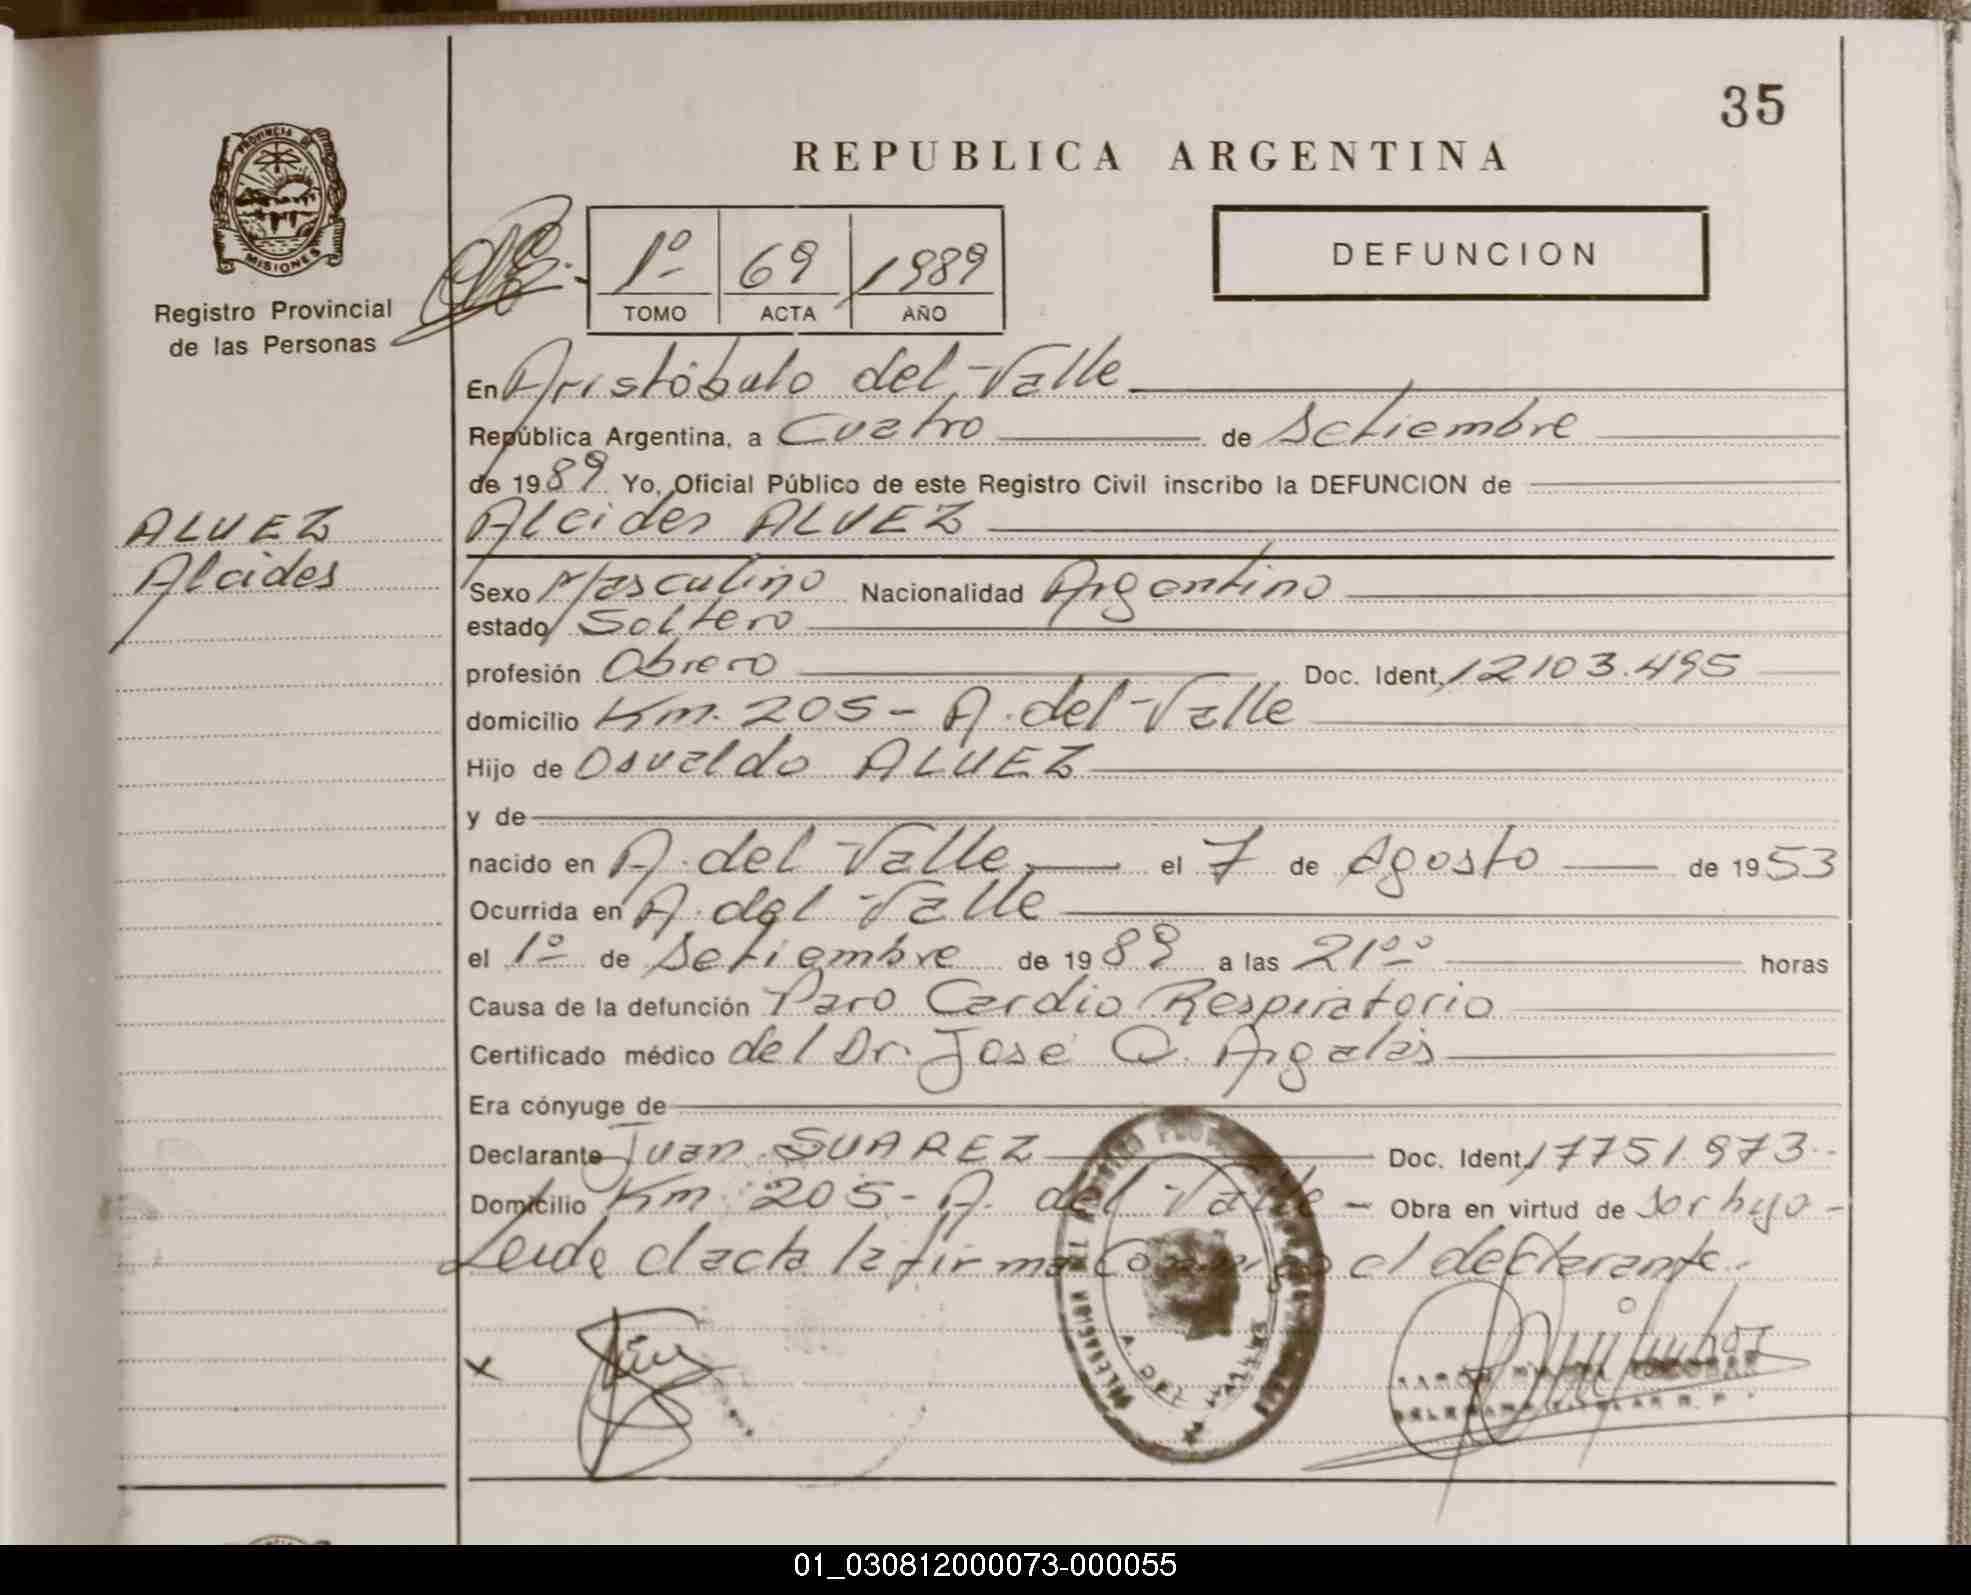 35
REPUBLICA ARGENTINA
PROVINCIA DE
MISIONES
Registro Provincial
de las Personas
1º 69 1989
TOMO ACTA AÑO
DEFUNCION
En Aristóbulo del Valle
República Argentina, a Cuatro de Setiembre
de 1989 Yo, Oficial Público de este Registro Civil inscribo la DEFUNCION de
ALVEZ
Alcides
Alcides ALVEZ
Sexo Masculino Nacionalidad Argentino
estado Soltero
profesión Obrero Doc. Ident. 12103.495
domicilio Km. 205 - A. del Valle
Hijo de Osvaldo ALVEZ
y de
nacido en A. del Valle el 7 de Agosto de 1953
Ocurrida en A. del Valle
el 1º de Setiembre de 1989 a las 21ºº horas
Causa de la defunción Paro Cardio Respiratorio
Certificado médico del Dr. José O. Argalas
Era cónyuge de
Declarante Juan SUAREZ Doc. Ident. 17751.973-
Domicilio Km 205 - A. del Valle - Obra en virtud de ser hijo -
Leida el acta la firma Conmigo el declarante.
A. DEL VALLE
01_030812000073-000055